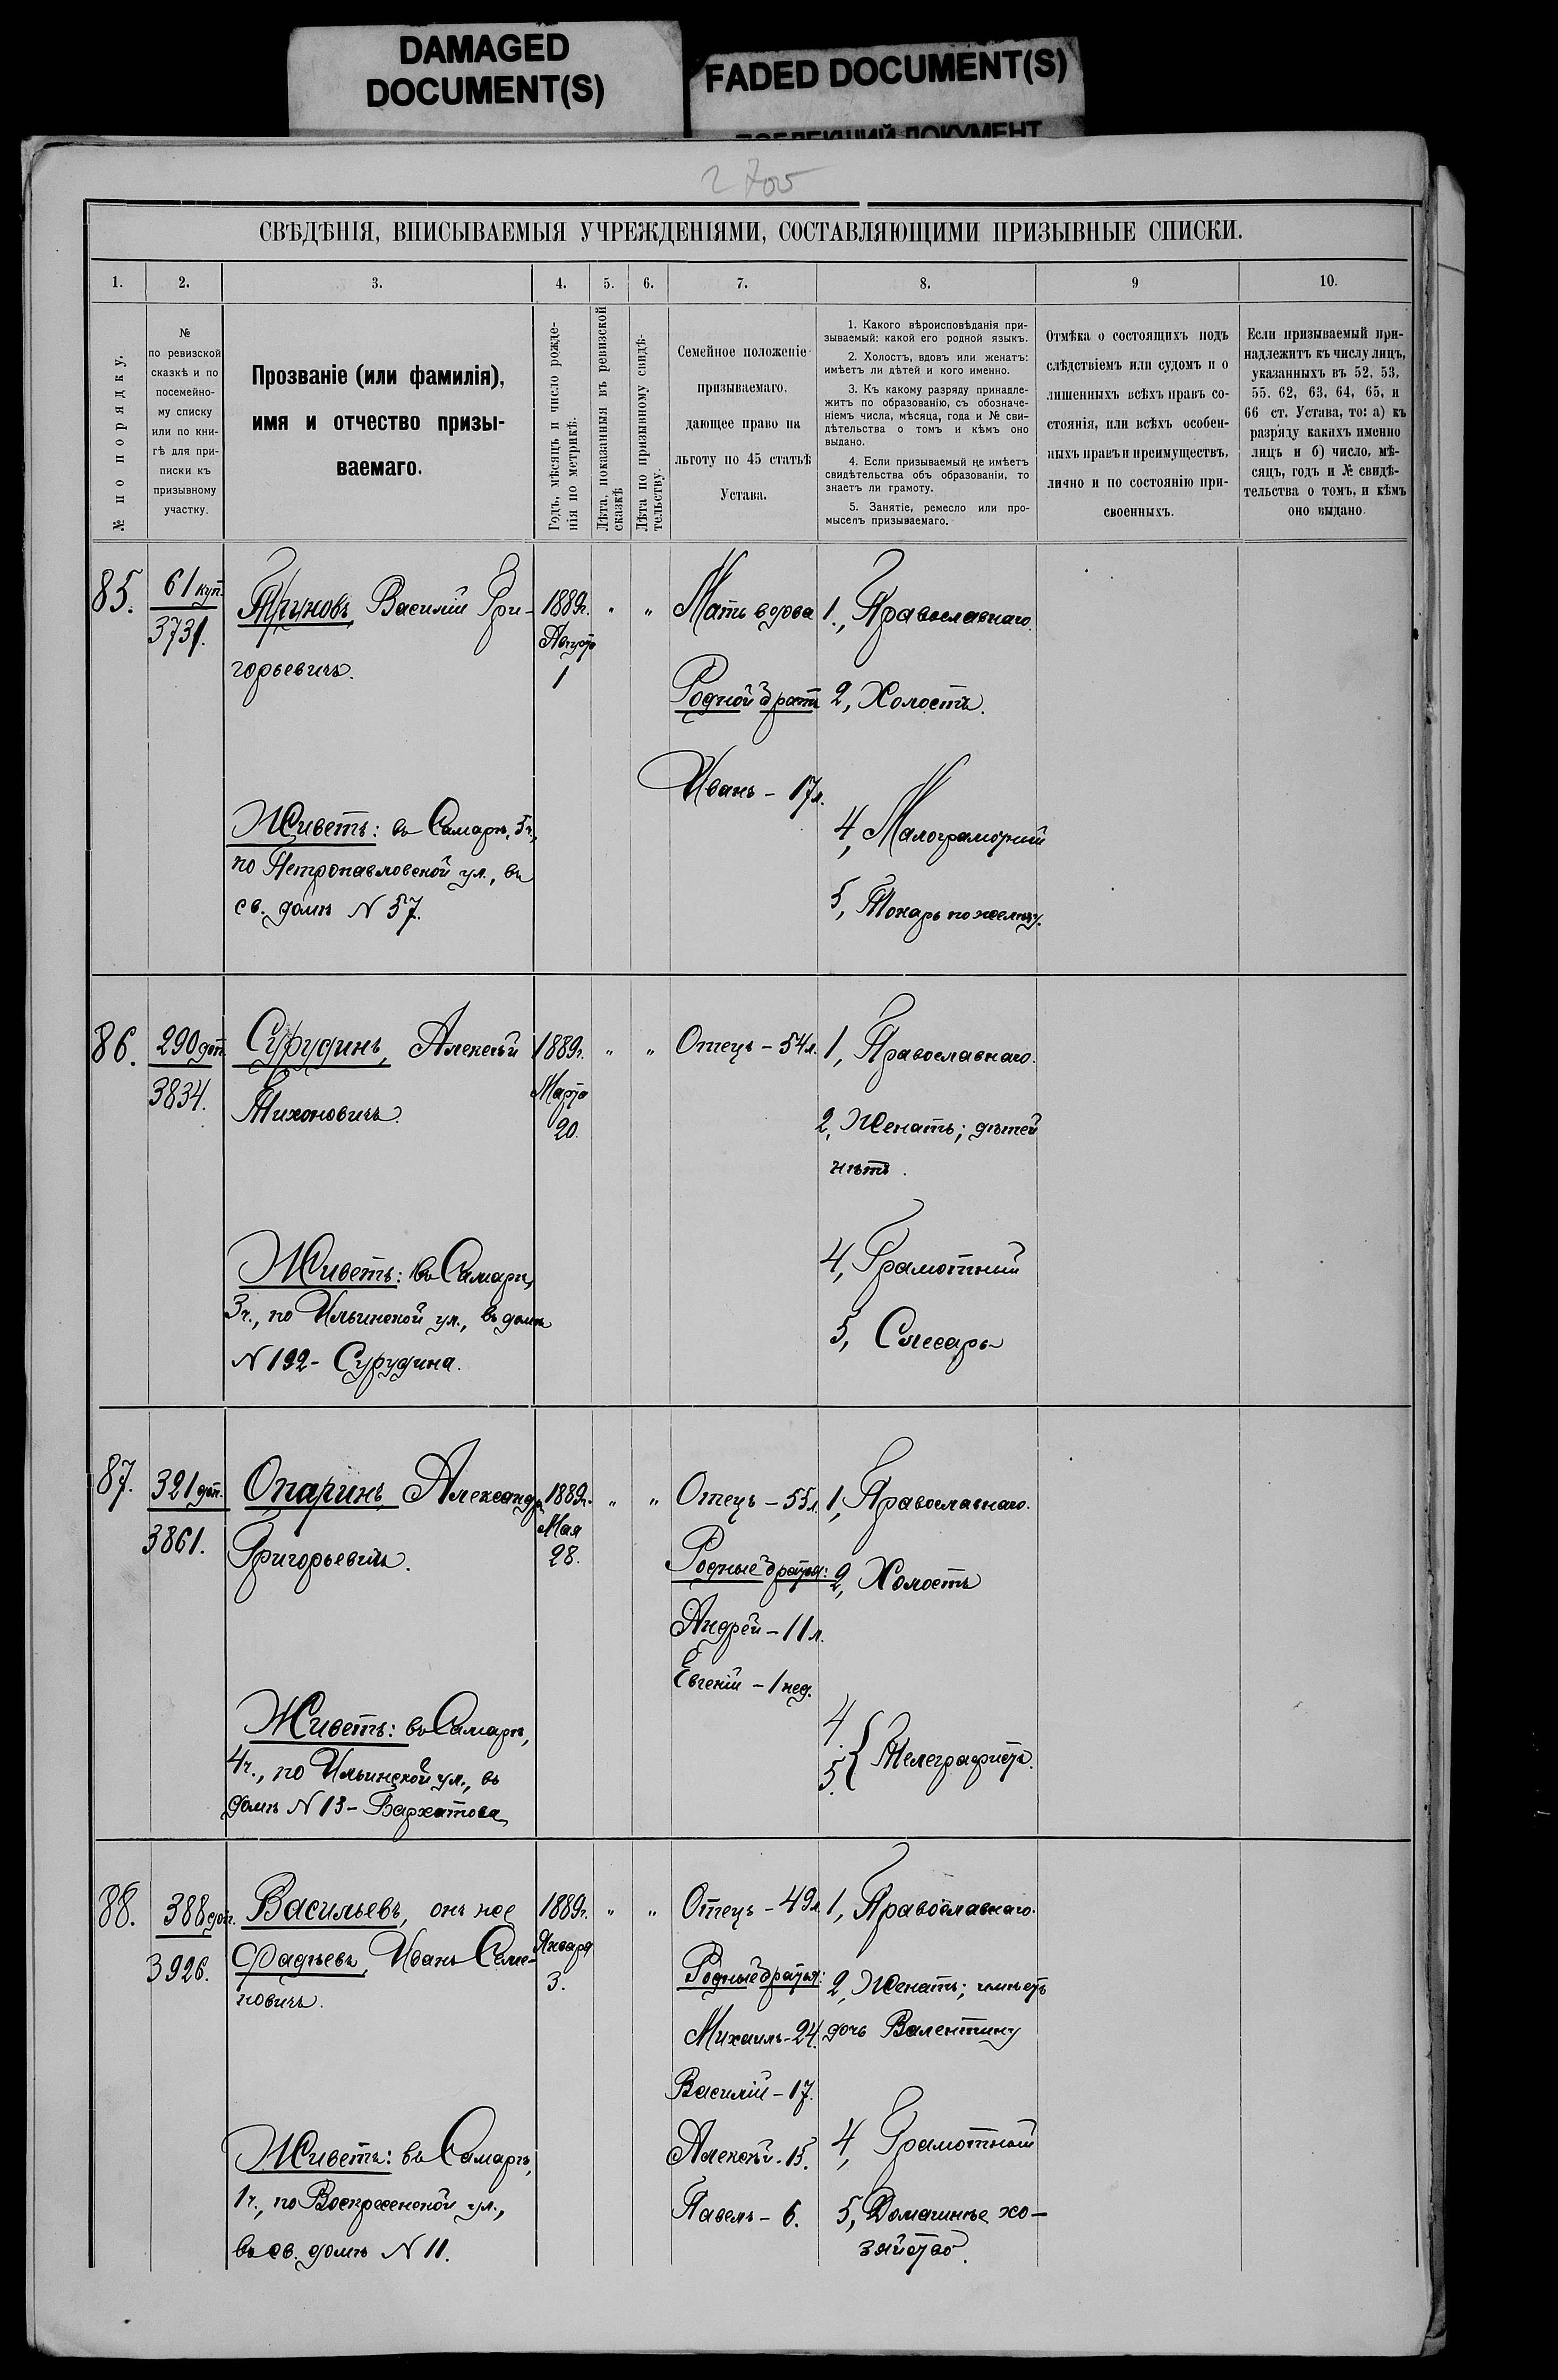 DAMAGED
DOCUMENT(S)
FADED DOCUMENT(S)
СВѢДѢНІЯ, ВПИСЫВАЕМЫЯ УЧРЕЖДЕНІЯМИ, СОСТАВЛЯЮЩИМИ ПРИЗЫВНЫЕ СПИСКИ.
1.
2.
3.
4.
5.
6.
7.
8.
9
10.
№ по порядку.
№
по ревизской
сказкѣ и по
посемейно-
му списку
или по кни-
гѣ для при-
писки къ
призывному
участку.
Прозваніе (или фамилія),
имя и отчество призы-
ваемаго.
Годъ, мѣсяцъ и число рожде-
нія по метрикѣ.
Лѣта, показанныя въ ревизской
сказкѣ
Лѣта по призывному свидѣ-
тельству.
Семейное положеніе
призываемаго,
дающее право на
льготу по 45 статьѣ
Устава.
1. Какого вѣроисповѣданія при-
зываемый: какой его родной языкъ.
2. Холостъ, вдовъ или женатъ:
имѣетъ ли дѣтей и кого именно.
3. Къ какому разряду принадле-
житъ по образованію, съ обозначе-
ніемъ числа, мѣсяца, года и № сви-
дѣтельства о томъ и кѣмъ оно
выдано.
4. Если призываемый не имѣетъ
свидѣтельства объ образованіи, то
знаетъ ли грамоту.
5. Занятіе, ремесло или про-
мыселъ призываемаго.
Отмѣка о состоящихъ подъ
слѣдствіемъ или судомъ и о
лишенныхъ всѣхъ правъ со-
стоянія, или всѣхъ особен-
ныхъ правъ и преимуществъ,
лично и по состоянію при-
своенныхъ.
Если призываемый при-
надлежитъ къ числу лицъ,
указанныхъ въ 52, 53,
55, 62, 63, 64, 65, и
66 ст. Устава, то: а) къ
разряду какихъ именно
лицъ и б) число, мѣ-
сяцъ, годъ и № свидѣ-
тельства о томъ, и кѣмъ
оно выдано.
85.
61 куп.
3731.
Василій Гри-
горьевичъ.
Живетъ: въ Самарѣ, 5ч.,
по Петропавловской ул., въ
св. домѣ N 57.
1889г.
Августа
1
" "
Мать вдова
Родной братъ
Иванъ - 17л.
1, Православнаго.
2, Холостъ.
4, Малограмотный
5, Токарь по желѣзу.
86.
290 доп.
3834.
Сурудинъ, Алексѣй
Тихоновичъ.
Живетъ: въ Самарѣ,
3ч., по Ильинской ул., въ домѣ
N 192 - Сурудина.
1889г.
Марта
20.
" "
Отецъ - 54л.
1, Православнаго.
2, Женатъ; дѣтей
нѣтъ.
4, Грамотный
5, Слесарь
87.
321 доп.
3861.
Опаринъ, Александръ
Григорьевичъ.
Живетъ: въ Самарѣ,
4ч., по Ильинской ул., въ
домѣ N 13 - Бархатова
1889г.
Мая
28.
" "
Отецъ - 55л.
Родные братья:
Андрей - 11л.
Евгеній - 1 нед.
1, Православнаго.
2, Холостъ
4.
5. { Телеграфистъ.
88.
388 доп.
3926.
Васильевъ, онъ же
Фадѣевъ, Иванъ Семе-
новичъ.
Живетъ: въ Самарѣ,
1ч., по Воскресенской ул.,
въ св. домѣ N 11.
1889г.
Января
3.
" "
Отецъ - 49л.
Родные братья:
Михаилъ - 24.
Василій - 17.
Алексѣй - 15.
Павелъ - 6.
1, Православнаго.
2, Женатъ; имѣетъ
дочь Валентину
4, Грамотный
5, Домашнее хо-
зяйство.